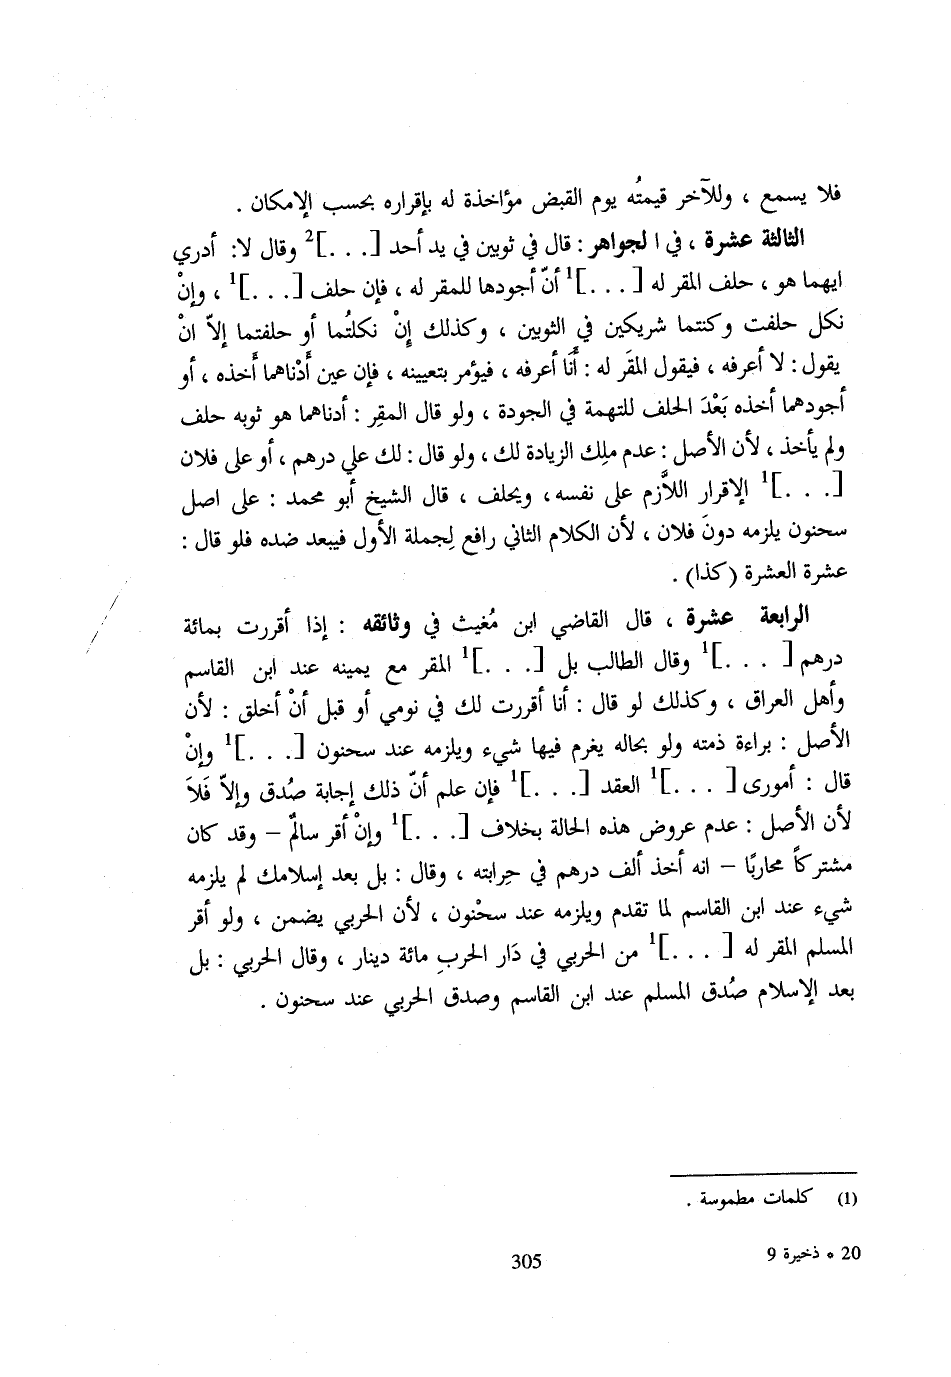 فلا يسمع ، وللآخر قيمتُه يوم القبض مؤاخذة له بإقراره بحسب الإمكان .
الثالثة عشرة ، في ا لجواهر : قال في ثوبين في يد أحد [. . .]2 وقال لا: أدري
ايهما هو ، حلف المقر له [. . .]1 أنّ أجودها للمقر له ، فإن حلف [. . .]1 ، وإنْ
نكل حلفت وكنتما شريكين في الثوبين ، وكذلك إنْ نكلتُما أو حلفتما إلاّ انْ
يقول : لا أعرفه ، فيقول المقَر له : أَنا أعرفه ، فيؤمر بتعيينه ، فإن عين أَدْناهما أَخذه ، أو
أجودهما أخذه بَعْدَ الحلف للتهمة في الجودة ، ولو قال المقِر : أدناهما هو ثوبه حلف
ولم يأخذ ، لأن الأصل : عدم ملِك الزيادة لك ، ولو قال : لك علي درهم ، أو على فلان
[. . .]1 الإقرار اللاَّزم على نفسه ، ويحلف ، قال الشيخ أبو محمد : على اصل
سحنون يلزمه دونَ فلان ، لأن الكلام الثاني رافع لِجملة الأول فيبعد ضده فلو قال :
عشرة العشرة (كذا) .
الرابعة عشرة ، قال القاضي ابن مُغيث في وثائقه : إذا أقررت بمائة
درهم [. . .]1 وقال الطالب بل [. . .]1 المقر مع يمينه عند ابن القاسم
وأهل العراق ، وكذلك لو قال : أنا أقررت لك في نومي أو قبل أنْ أخلق : لأن
الأصل : براءة ذمته ولو بحاله يغرم فيها شيء ويلزمه عند سحنون [. . .]1 وإنْ
قال : أمورى [. . .]1 العقد [. . .]1 فإن علم أنّ ذلك إجابة صُدق وإلاّ فَلاَ
لأن الأصل : عدم عروض هذه الحالة بخلاف [. . .]1 وإنْ أقر سالمٌ – وقد كان
مشتركاً محاربًا – انه أخذ ألف درهم في حِرابته ، وقال : بل بعد إسلامك لم يلزمه
شيء عند ابن القاسم لما تقدم ويلزمه عند سحْنون ، لأن الحربي يضمن ، ولو أقر
المسلم المقر له [. . .]1 من الحربي في دَار الحربِ مائة دينار ، وقال الحربي : بل
بعد الإسلام صُدق المسلم عند ابن القاسم وصدق الحربي عند سحنون .
(1) كلمات مطموسة .
20 * ذخيرة 9
305